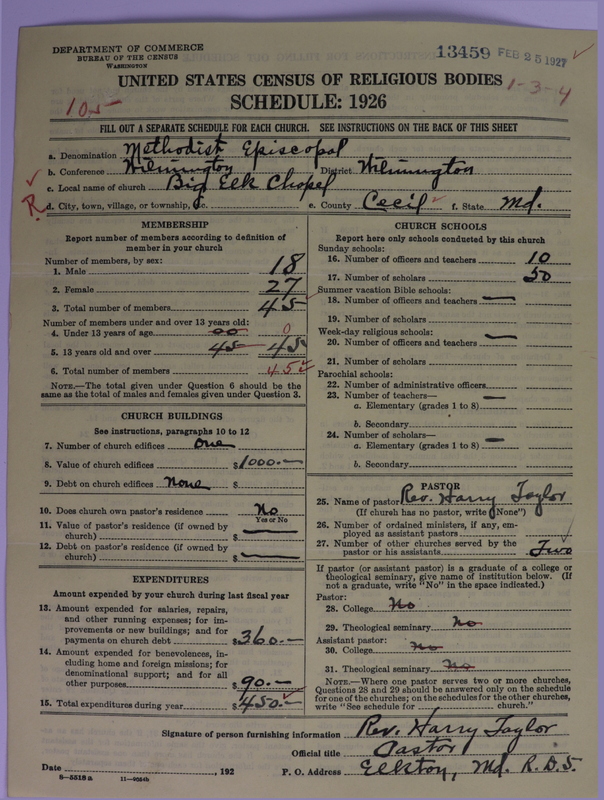 DEPARTMENT OF COMMERCE
BUREAU OF THE CENSUS
WASHINGTON
13459 FEB 25 1927
UNITED STATES CENSUS OF RELIGIOUS BODIES
1-3-4
SCHEDULE: 1926
105
FILL OUT A SEPARATE SCHEDULE FOR EACH CHURCH. SEE INSTRUCTIONS ON THE BACK OF THIS SHEET
a. Denomination Methodist Episcopal
b. Conference Wilmington District Wilmington
c. Local name of church Big Elk Chapel
R d. City, town, village, or township, &c. e. County Cecil f. State Md.
MEMBERSHIP
Report number of members according to definition of
member in your church
Number of members, by sex:
1. Male 18
2. Female 27
3. Total number of members 45
Number of members under and over 13 years old:
4. Under 13 years of age 00 0
5. 13 years old and over 45 45
6. Total number of members 45
NOTE.—The total given under Question 6 should be
same as the total of males and females given under Question 3.
CHURCH BUILDINGS
See instructions, paragraphs 10 to 12
7. Number of church edifices one
8. Value of church edifices $1000.—
9. Debt on church edifices None $
10. Does church own pastor's residence No
Yes or No
11. Value of pastor's residence (if owned by
church) $ —
12. Debt on pastor's residence (if owned by
church) $ —
EXPENDITURES
Amount expended by your church during last fiscal year
13. Amount expended for salaries, repairs,
and other running expenses; for im-
provements or new buildings; and for
payments on church debt $360.—
14. Amount expended for benevolences, in-
cluding home and foreign missions; for
denominational support; and for all
other purposes $90.—
15. Total expenditures during year $450.—
CHURCH SCHOOLS
Report here only schools conducted by this church
Sunday schools:
16. Number of officers and teachers 10
17. Number of scholars 50
Summer vacation Bible schools:
18. Number of officers and teachers —
19. Number of scholars
Week-day religious schools: —
20. Number of officers and teachers
21. Number of scholars
Parochial schools:
22. Number of administrative officers
23. Number of teachers— —
a. Elementary (grades 1 to 8)
b. Secondary
24. Number of scholars— —
a. Elementary (grades 1 to 8)
b. Secondary
PASTOR
25. Name of pastor Rev. Harry Taylor
(If church has no pastor, write "None")
26. Number of ordained ministers, if any, em-
ployed as assistant pastors
27. Number of other churches served by the
pastor or his assistants Two
If pastor (or assistant pastor) is a graduate of a college or
theological seminary, give name of institution below. (If
not a graduate, write "No" in the space indicated.)
Pastor:
28. College No
29. Theological seminary No
Assistant pastor:
30. College No
31. Theological seminary No
NOTE.—Where one pastor serves two or more churches,
Questions 28 and 29 should be answered only on the schedule
for one of the churches; on the schedules for the other churches,
write "See schedule for church."
Signature of person furnishing information Rev. Harry Taylor
Official title Pastor
Date , 192 P. O. Address Elkton, Md. R.D.5.
8—5518a 11—9064b